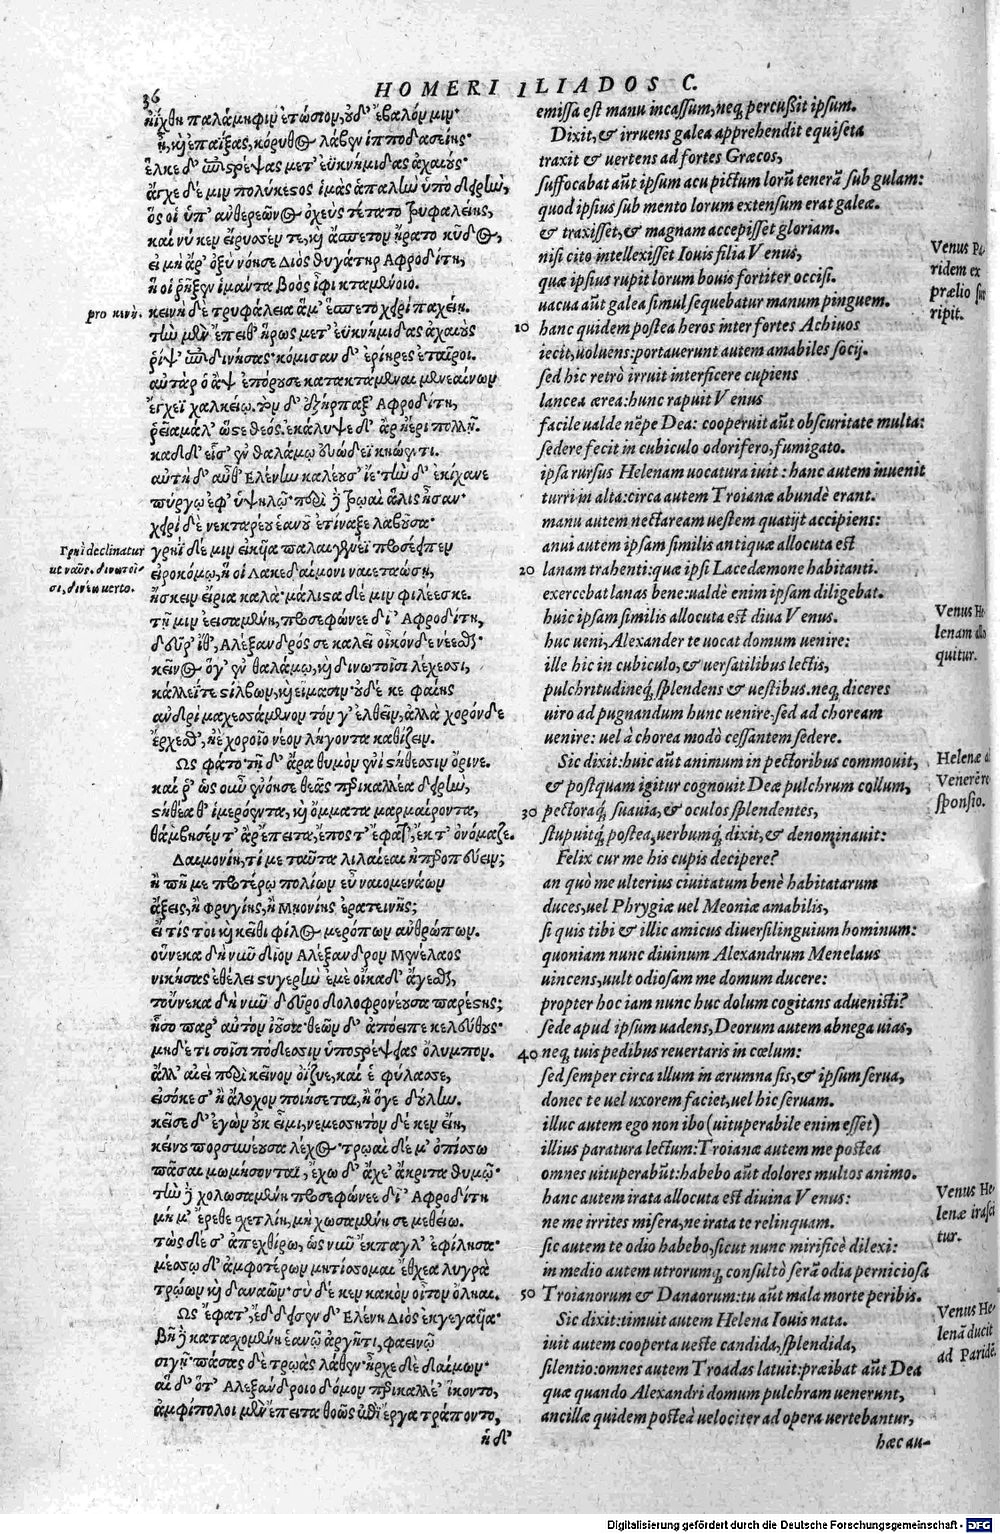 36
HOMERI ILIADOS C.
ἠΐχθη παλάμηφιν ἐτώσιον, οὐδ᾽ ἔβαλόν μιν·
ἦ, κὴ ἐπαΐξας, κόρυθος λάβεν ἱπποδασείης·
ἕλκε δ᾽ ἐπιστρέψας μετ᾽ ἐϋκνήμιδας ἀχαιούς·
ἄγχε δέ μιν πολύκεστος ἱμὰς ἁπαλὴν ὑπὸ δειρὴν,
ὅς οἱ ὑπ᾽ ἀνθερεῶνος ὀχεὺς τέτατο τρυφαλείης,
καί νύ κεν εἴρυσσέν τε, κὴ ἄσπετον ἤρατο κῦδος,
εἰ μὴ ἄρ᾽ ὀξὺ νόησε Διὸς θυγάτηρ Ἀφροδίτη,
ἥ οἱ ῥῆξεν ἱμάντα βοὸς ἶφι κταμένοιο.
pro κενή.
κεινὴ δὲ τρυφάλεια ἅμ᾽ ἕσπετο χειρὶ παχείῃ.
τὴν μὲν ἔπειθ᾽ ἥρως μετ᾽ ἐϋκνήμιδας ἀχαιοὺς
ῥίψ᾽ ἐπιδινήσας· κόμισαν δ᾽ ἐρίηρες ἑταῖροι.
αὐτὰρ ὁ ἂψ ἐπόρουσε κατακτάμεναι μενεαίνων
ἔγχεϊ χαλκείῳ. τὸν δ᾽ ἐξήρπαξ᾽ Ἀφροδίτη,
ῥεῖα μάλ᾽ ὥστε θεός. ἐκάλυψε δ᾽ ἄρ᾽ ἠέρι πολλῇ.
καδδ᾽ εἷσ᾽ ἐν θαλάμῳ εὐώδεϊ κηώεντι.
αὐτὴ δ᾽ αὖθ᾽ Ἑλένην καλέουσ᾽ ἴε· τὴν δ᾽ ἐκίχανε
πύργῳ ἐφ᾽ ὑψηλῷ· περὶ δὲ τρωαὶ ἅλις ἦσαν·
χειρὶ δὲ νεκταρέου ἑανοῦ ἐτίναξε λαβοῦσα·
Γρηῒ declinatur
ut ναῦς. δινωτοῖσι,
δινέω uerto.
γρηῒ δέ μιν εἰκυῖα παλαιγενέϊ προσέειπεν
εἰροκόμῳ, ἥ οἱ Λακεδαίμονι ναιεταώσῃ,
ἤσκειν εἴρια καλά· μάλιστα δέ μιν φιλέεσκε.
τῇ μιν ἐεισαμένη, προσεφώνεε δῖ᾽ Ἀφροδίτη,
δεῦρ᾽ ἴθ᾽, Ἀλέξανδρός σε καλεῖ οἶκόνδε νέεσθαι·
κεῖνος ὅγ᾽ ἐν θαλάμῳ, κὴ δινωτοῖσι λέχεσσι,
κάλλεΐ τε στίλβων, κὴ εἵμασιν· οὐδέ κε φαίης
ἀνδρὶ μαχεσσάμενον τόν γ᾽ ἐλθεῖν, ἀλλὰ χορόνδε
ἔρχεσθ᾽, ἠὲ χοροῖο νέον λήγοντα καθίζειν.
Ως φάτο· τῇ δ᾽ ἄρα θυμὸν ἐνὶ στήθεσσιν ὄρινε.
καί ῥ᾽ ὡς οὖν ἐνόησε θεᾶς περικαλλέα δειρὴν,
στήθεά θ᾽ ἱμερόεντα, κὴ ὄμματα μαρμαίροντα,
θάμβησέν τ᾽ ἄρ ἔπειτα, ἔπος τ᾽ ἔφατ᾽, ἔκ τ᾽ ὀνόμαζε.
Δαιμονίη, τί με ταῦτα λιλαίεαι ἠπεροπεύειν;
ἦ πῇ με προτέρω πολίων εὖ ναιομενάων
ἄξεις, ἢ Φρυγίης, ἢ Μῃονίης ἐρατεινῆς;
εἴ τίς τοι κὴ κεῖθι φίλος μερόπων ἀνθρώπων.
οὕνεκα δὴ νῦν δῖον Ἀλέξανδρον Μενέλαος
νικήσας ἐθέλει στυγερὴν ἐμὲ οἴκαδ᾽ ἄγεσθαι,
τοὔνεκα δὴ νῦν δεῦρο δολοφρονέουσα παρέστης;
ἧσο παρ᾽ αὐτὸν ἰοῦσα· θεῶν δ᾽ ἀπόειπε κελεύθους·
μηδέ τι σοῖσι πόδεσσιν ὑποστρέψειας ὄλυμπον.
ἀλλ᾽ αἰεὶ περὶ κεῖνον ὀΐζυε, καί ἑ φύλασσε,
εἰσόκε σ᾽ ἢ ἄλοχον ποιήσεται, ἢ ὅγε δούλην.
κεῖσε δ᾽ ἐγὼν οὐκ εἶμι, νεμεσσητὸν δέ κεν εἴη,
κείνου πορσυνέουσα λέχος· τρωαὶ δέ μ᾽ ὀπίσσω
πᾶσαι μωμήσονται, ἔχω δ᾽ ἄχε᾽ ἄκριτα θυμῷ·
τὴν δὲ χολωσαμένη προσεφώνεε δῖ᾽ Ἀφροδίτη
μή μ᾽ ἔρεθε σχετλίη, μὴ χωσαμένη σε μεθείω.
τὼς δέ σ᾽ ἀπεχθήρω, ὡς νῦν ἔκπαγλ᾽ ἐφίλησα·
μέσσῳ δ᾽ ἀμφοτέρων μητίσομαι ἔχθεα λυγρὰ
τρώων κὴ δαναῶν· σὺ δέ κεν κακὸν οἶτον ὄληαι.
Ως ἔφατ᾽, ἔδδεισεν δ᾽ Ἑλένη Διὸς ἐκγεγαυῖα·
βῆ δὲ κατασχομένη ἑανῷ ἀργῆτι, φαεινῷ
σιγῇ· πάσας δὲ τρῳὰς λάθεν· ἦρχε δὲ δαίμων·
αἱ δ᾽ ὅτ᾽ Ἀλεξάνδροιο δόμον περικαλλέ᾽ ἵκοντο,
ἀμφίπολοι μὲν ἔπειτα θοῶς ἐπὶ ἔργα τράποντο,
ἡ δ᾽
emissa est manu incassum, neq; percußit ipsum.
Dixit, & irruens galea apprehendit equiseta
traxit & uertens ad fortes Græcos,
suffocabat aũt ipsum acu pictum lorũ tenerã sub gulam:
quod ipsius sub mento lorum extensum erat galeæ.
& traxisset, & magnam accepisset gloriam.
nisi cito intellexisset Iouis filia Venus,
quæ ipsius rupit lorum bouis fortiter occisi.
uacua aũt galea simul sequebatur manum pinguem.
10 hanc quidem postea heros inter fortes Achiuos
iecit, uoluens: portauerunt autem amabiles socij.
sed hic retrò irruit interficere cupiens
lancea ærea: hunc rapuit Venus
facile ualde nẽpe Dea: cooperuit aũt obscuritate multa:
sedere fecit in cubiculo odorifero, fumigato.
ipsa rursus Helenam uocatura iuit: hanc autem inuenit
turri in alta: circa autem Troianæ abundè erant.
manu autem nectaream uestem quatijt accipiens:
anui autem ipsam similis antiquæ allocuta est
20 lanam trahenti: quæ ipsi Lacedæmone habitanti.
exercebat lanas bene: ualdè enim ipsam diligebat.
huic ipsam similis allocuta est diua Venus.
huc ueni, Alexander te uocat domum uenire:
ille hic in cubiculo, & uersatilibus lectis,
pulchritudineq́; splendens & uestibus. neq; diceres
uiro ad pugnandum hunc uenire, sed ad choream
uenire: uel à chorea modò cessantem sedere.
Sic dixit: huic aũt animum in pectoribus commouit,
& postquam igitur cognouit Deæ pulchrum collum,
30 pectoraq́; suauia, & oculos splendentes,
stupuitq́; postea, uerbumq́; dixit, & denominauit:
Felix cur me his cupis decipere?
an quò me ulterius ciuitatum benè habitatarum
duces, uel Phrygiæ uel Meoniæ amabilis,
si quis tibi & illic amicus diuersilinguium hominum:
quoniam nunc diuinum Alexandrum Menelaus
uincens, uult odiosam me domum ducere:
propter hoc iam nunc huc dolum cogitans aduenisti?
sede apud ipsum uadens, Deorum autem abnega uias,
40 neq; tuis pedibus reuertaris in cœlum:
sed semper circa illum in ærumna sis, & ipsum serua,
donec te uel uxorem faciet, uel hic seruam.
illuc autem ego non ibo (uituperabile enim esset)
illius paratura lectum: Troianæ autem me postea
omnes uituperabũt: habebo aũt dolores multos animo.
hanc autem irata allocuta est diuina Venus:
ne me irrites misera, ne irata te relinquam.
sic autem te odio habebo, sicut nunc mirificè dilexi:
in medio autem utrorumq; consultò serã odia perniciosa
50 Troianorum & Danaorum: tu aũt mala morte peribis.
Sic dixit: timuit autem Helena Iouis nata.
iuit autem cooperta ueste candida, splendida,
silentio: omnes autem Troadas latuit: præibat aũt Dea
quæ quando Alexandri domum pulchram uenerunt,
ancillæ quidem posteà uelociter ad opera uertebantur,
hæc au-
Venus Pa-
ridem ex
prælio sur
ripit.
Venus He-
lenam allo
quitur.
Helenæ ad
Venerẽ re
sponsio.
Venus He-
lenæ irasci
tur.
Venus He-
lenã ducit
ad Paridẽ.
Digitalisierung gefördert durch die Deutsche Forschungsgemeinschaft - DFG